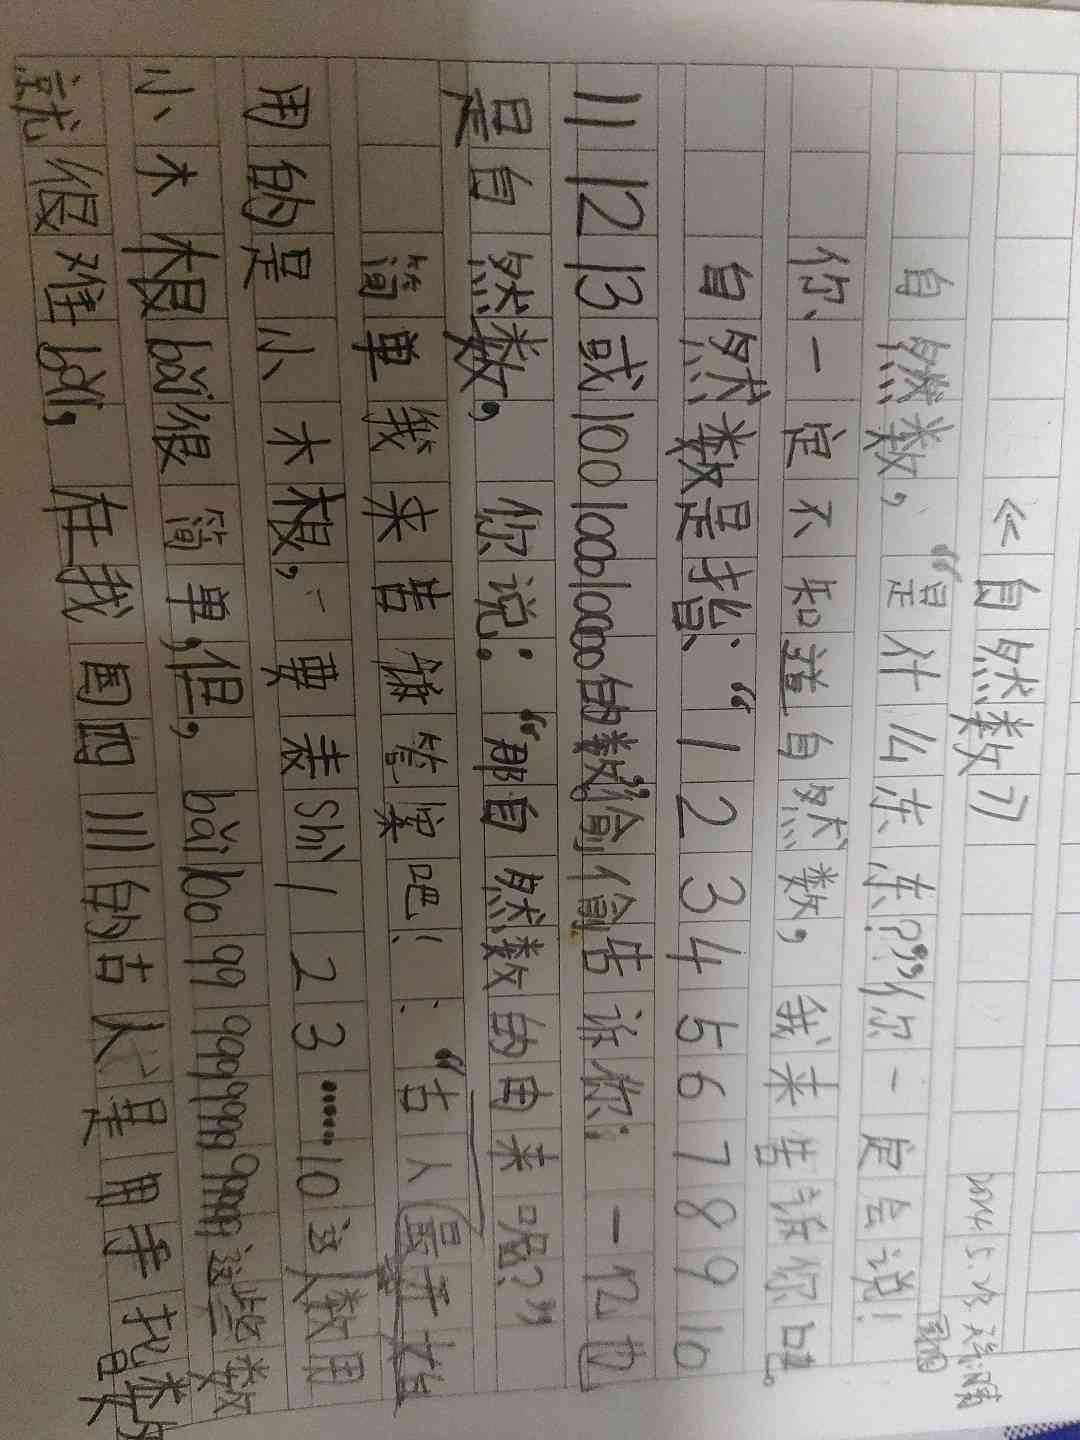 《自然数》
自然数，“是什么东东？”你一定会说！
你一定不知道自然数，我来告诉你吧。
自然数是指：“1 2 3 4 5 6 7 8 9 10
11 12 13或100 1000 10000的数”偷偷告诉你：一亿也
是自然数，你说：“那自然数的由来呢？”
简单我来告诉答案吧！：“古人最开始
用的是小木棍，一要表shì 1 2 3……10这人数用
小木棍bǎi很简单，但，bǎi 100 99 999 9999 99999这些数
就很难bǎi，在我国四川的古人是用手指数